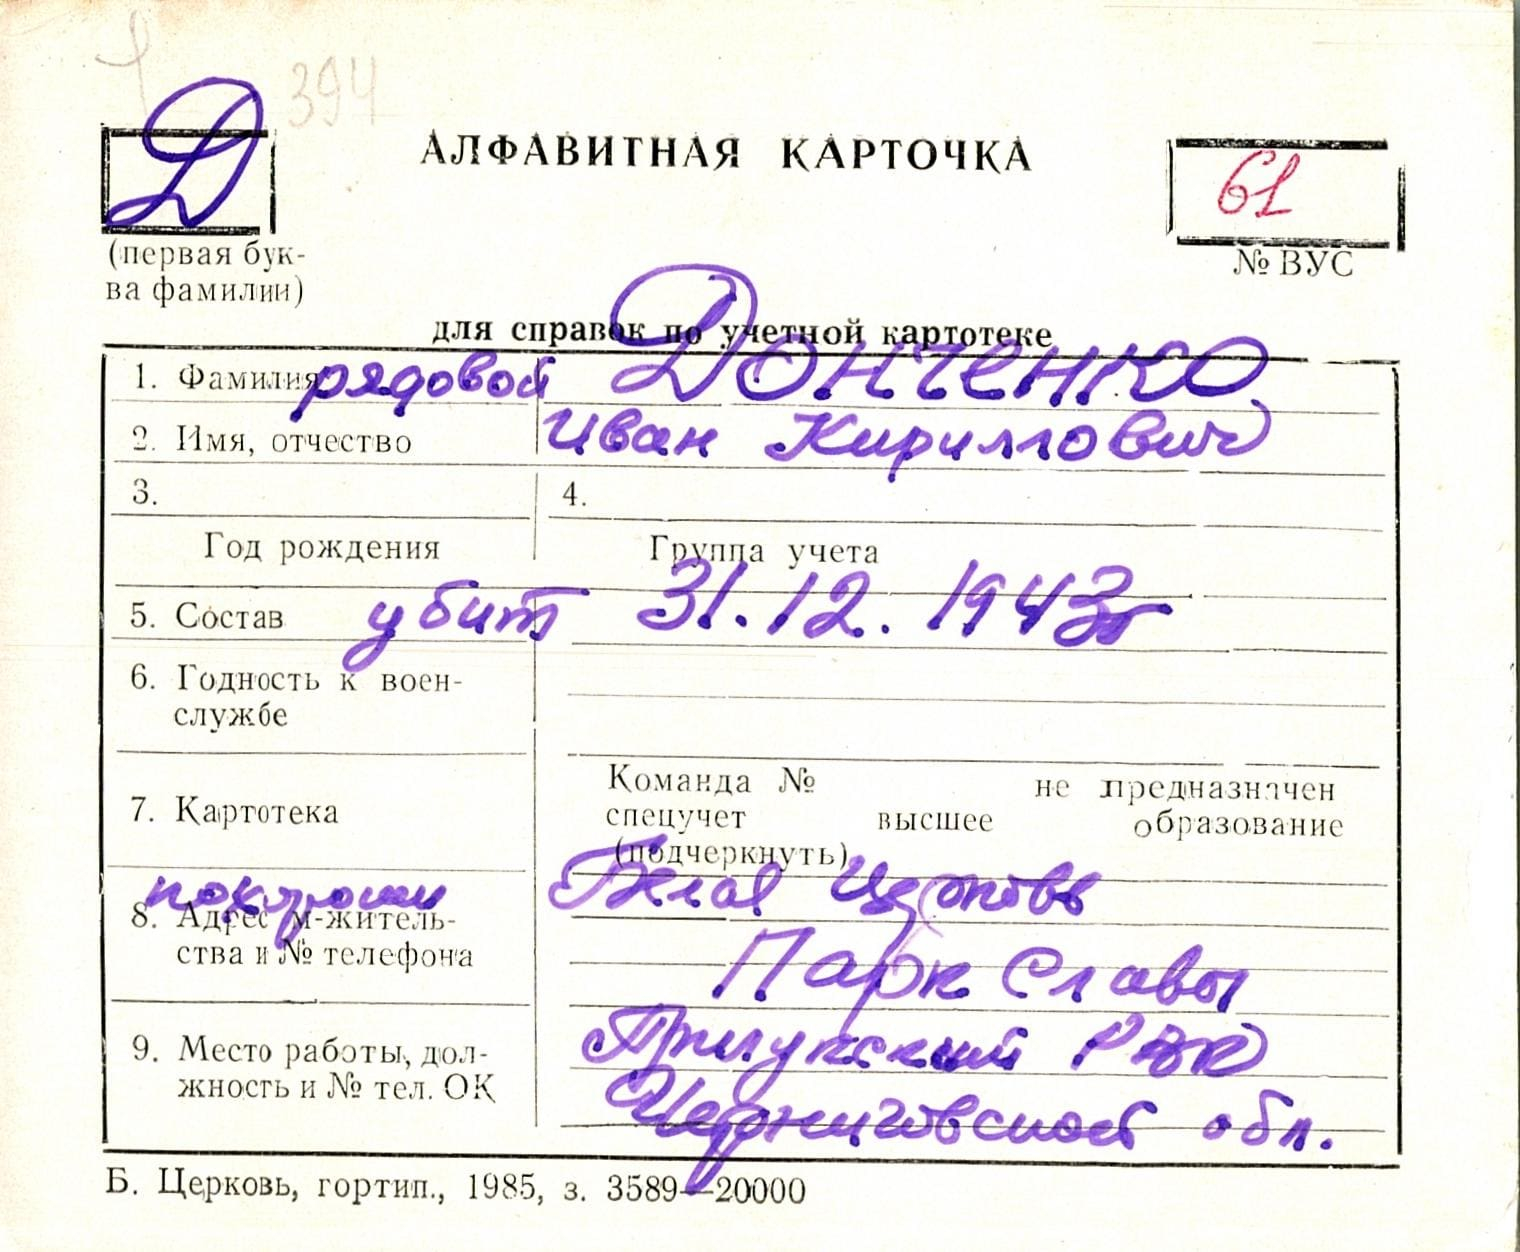 394
Д
АЛФАВИТНАЯ КАРТОЧКА
61
(первая бук-
ва фамилии)
№ ВУС
для справок по учетной картотеке
1. Фамилия рядовой Донченко
2. Имя, отчество Иван Кириллович
3. 4.
Год рождения Группа учета
5. Состав убит 31.12.1943г
6. Годность к воен-
службе
7. Картотека
Команда № не предназначен
спецучет высшее образование
(подчеркнуть)
похоронен Белая Церковь
8. Адрес м-житель-
ства и № телефона
Парк Славы
9. Место работы, дол-
жность и № тел. ОК
Прилукский РВК
Черниговской обл.
Б. Церковь, гортип., 1985, з. 3589—20000